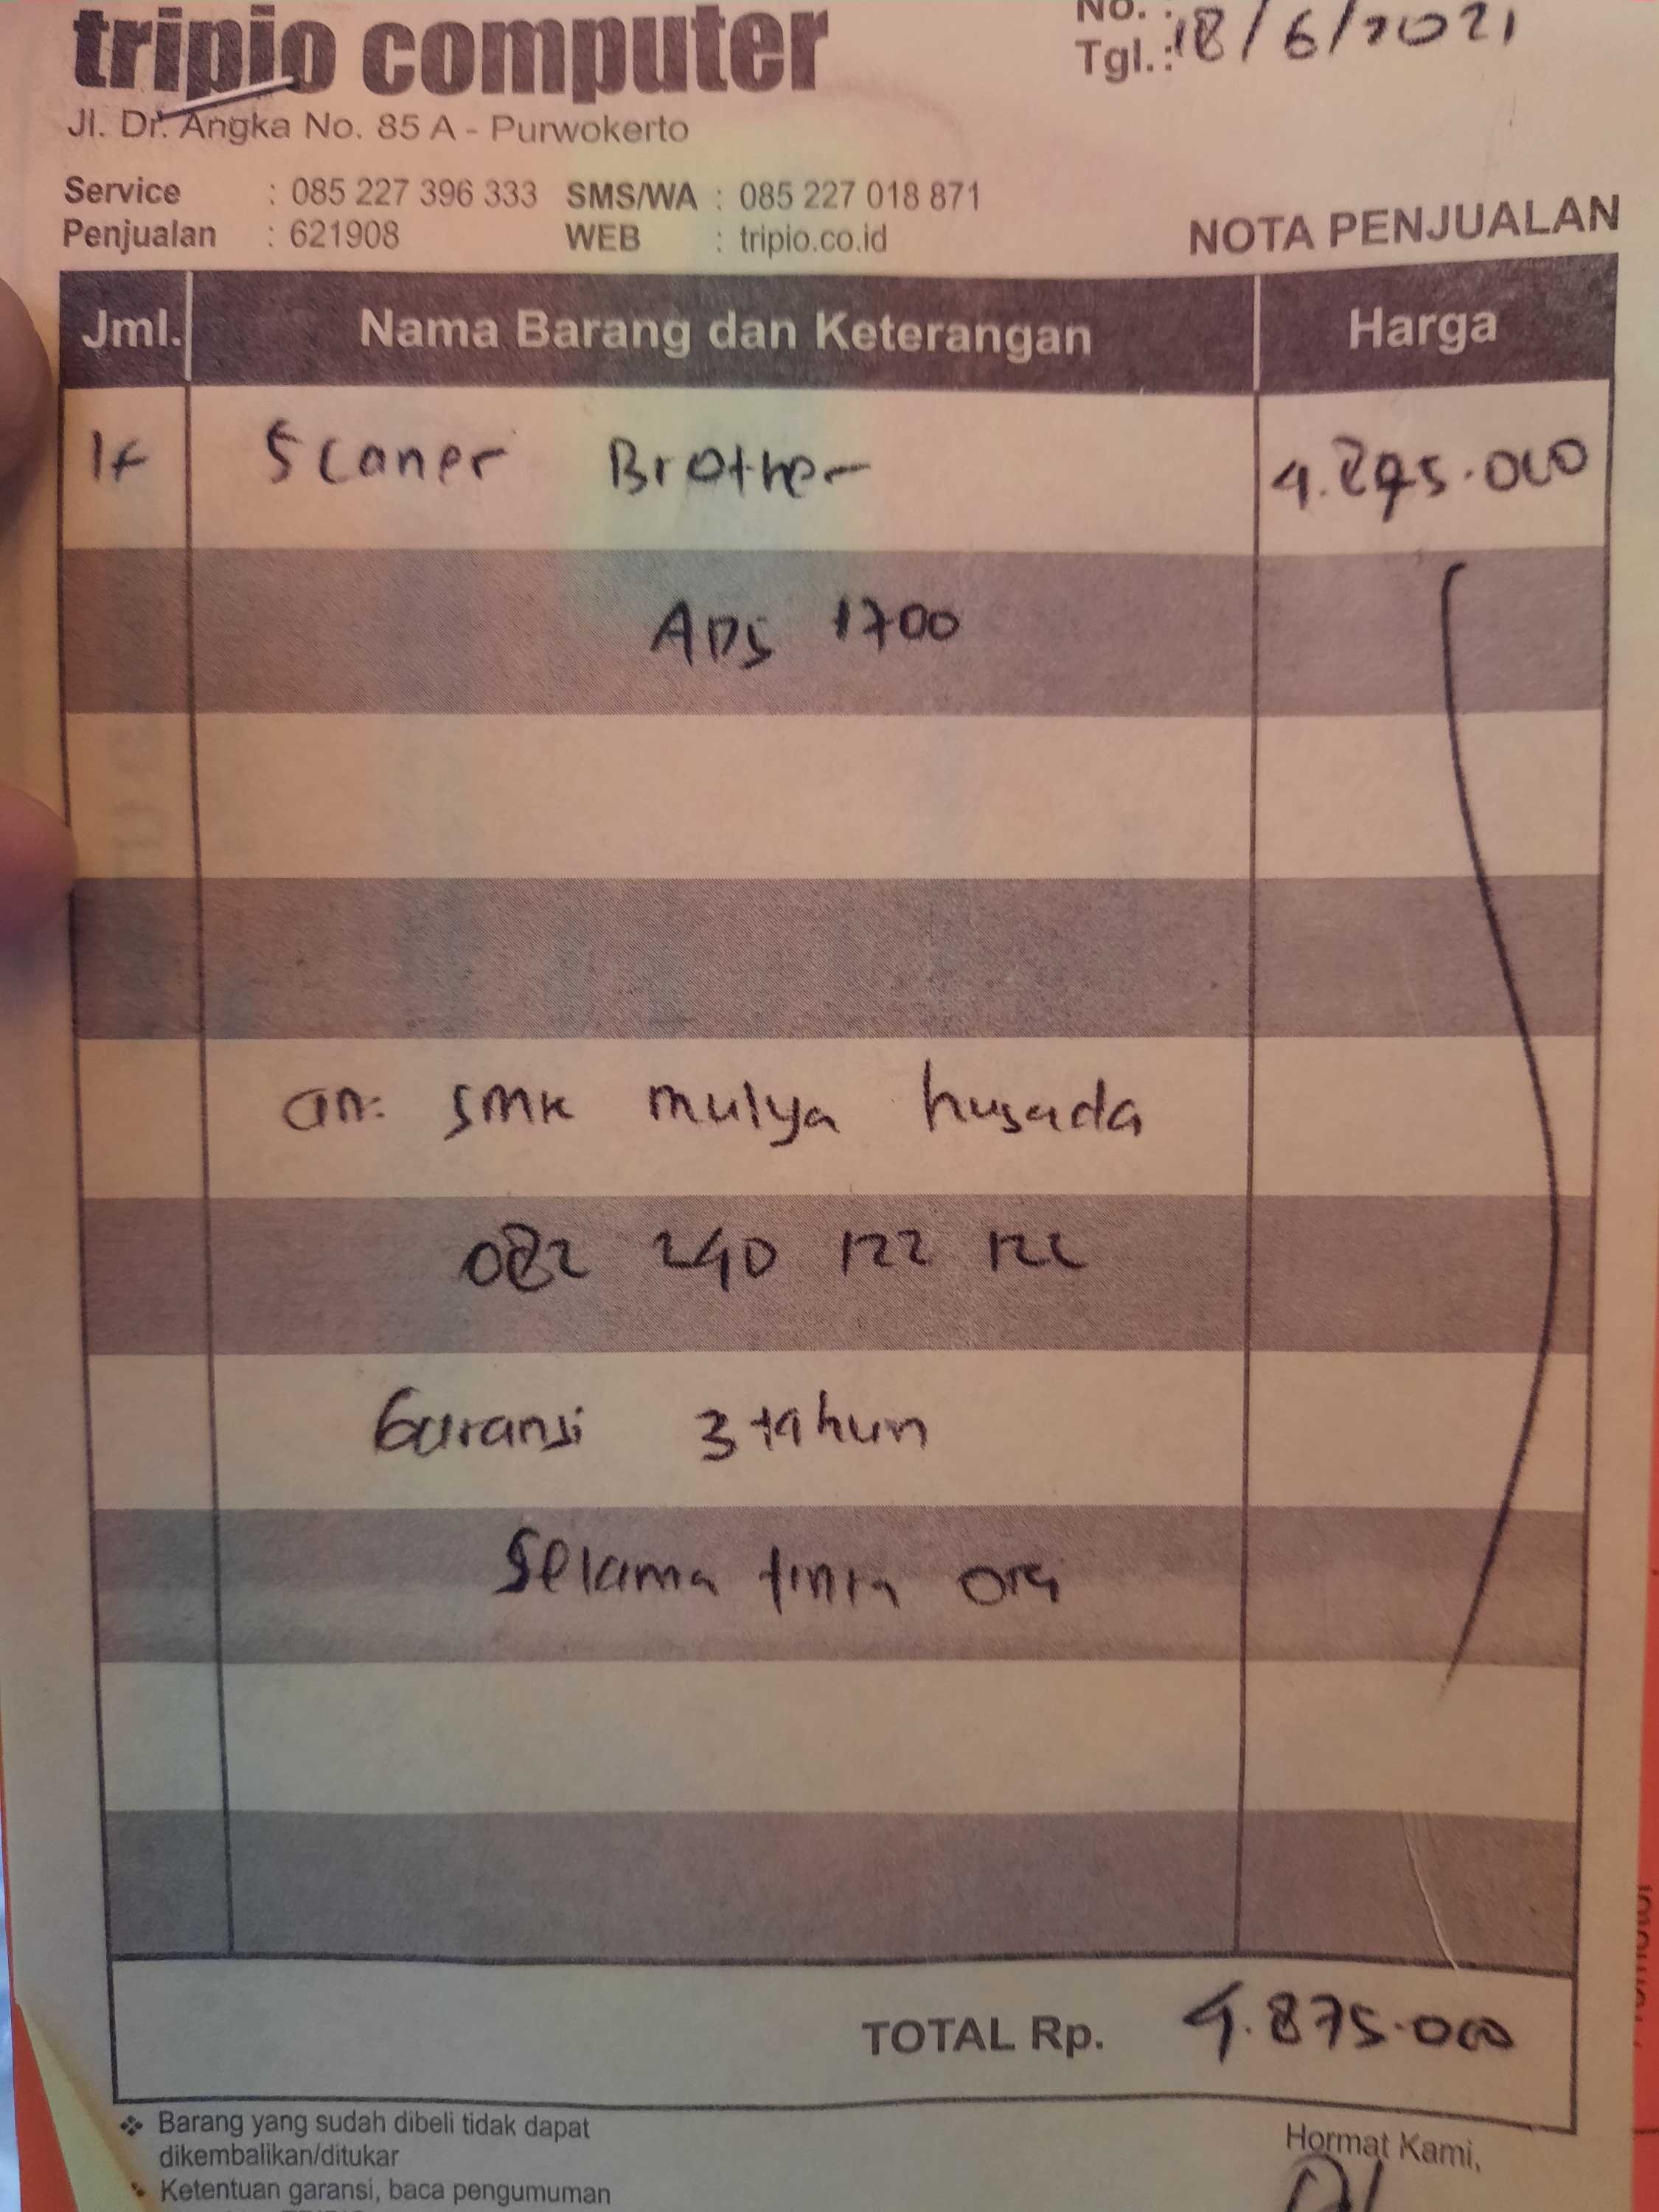 tripio computer
No. :
Tgl. : 18/6/2021
Jl. Dr. Angka No. 85 A - Purwokerto
Service : 085 227 396 333 SMS/WA : 085 227 018 871
Penjualan : 621908 WEB : tripio.co.id
NOTA PENJUALAN
Jml. Nama Barang dan Keterangan Harga
1x Scaner Brother 4.875.000
ADS 1700
an: SMK mulya husada
082 240 122 122
Garansi 3 tahun
Selama tinta ori
TOTAL Rp. 4.875.000
❖ Barang yang sudah dibeli tidak dapat
dikembalikan/ditukar
❖ Ketentuan garansi, baca pengumuman
Hormat Kami,